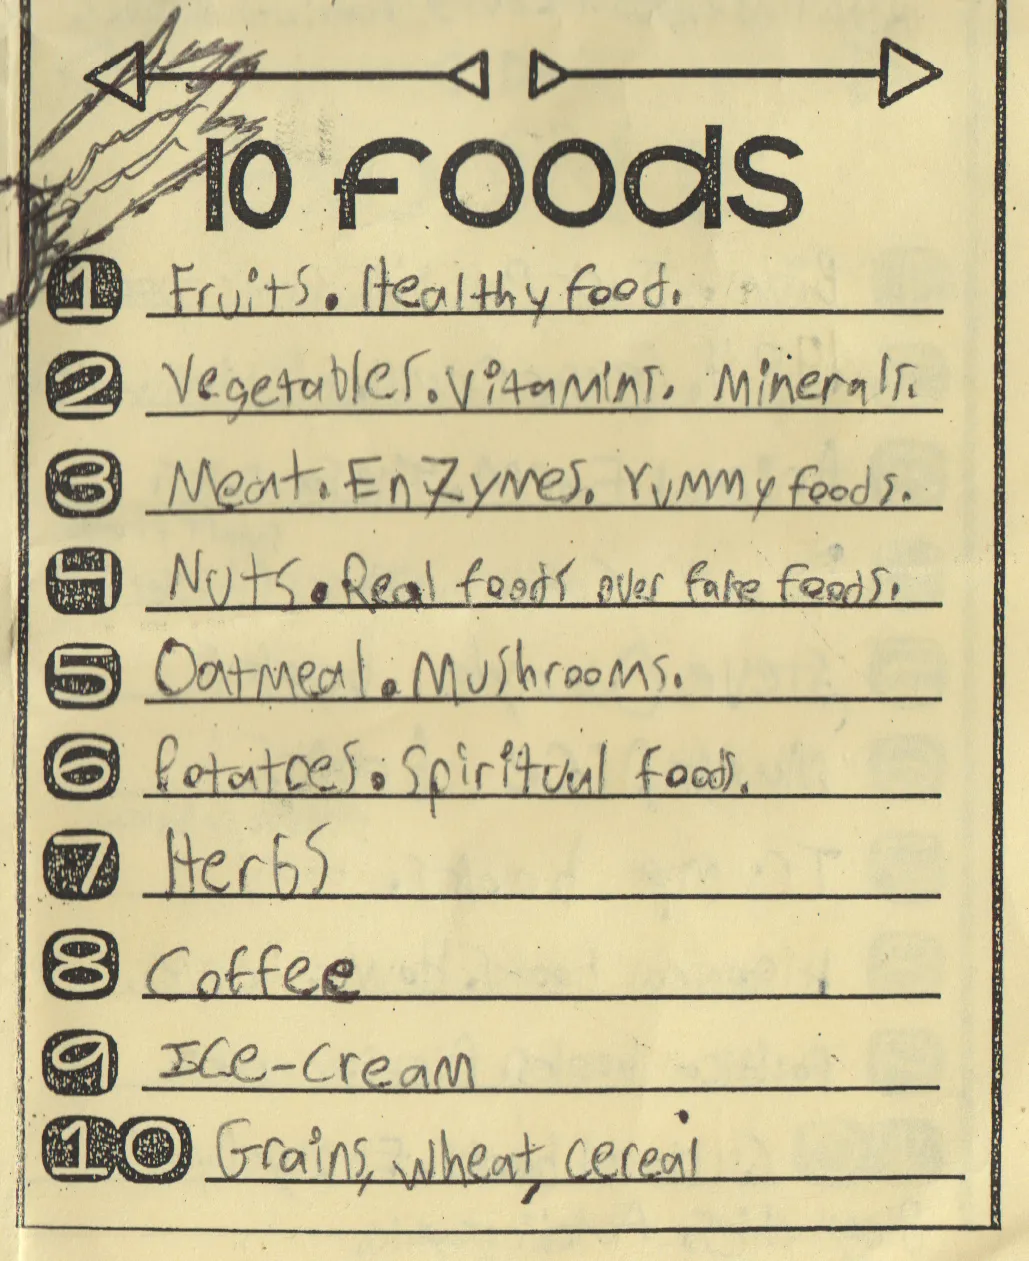 10 Foods
1 Fruits. Healthy food.
2 Vegetables. Vitamins. Minerals.
3 Meat. EnZymes. Yummy foods.
4 Nuts. Real foods over fake foods.
5 Oatmeal. Mushrooms.
6 Potatoes. Spiritual food.
7 Herbs
8 Coffee
9 ICe-Cream
10 Grains, wheat, cereal